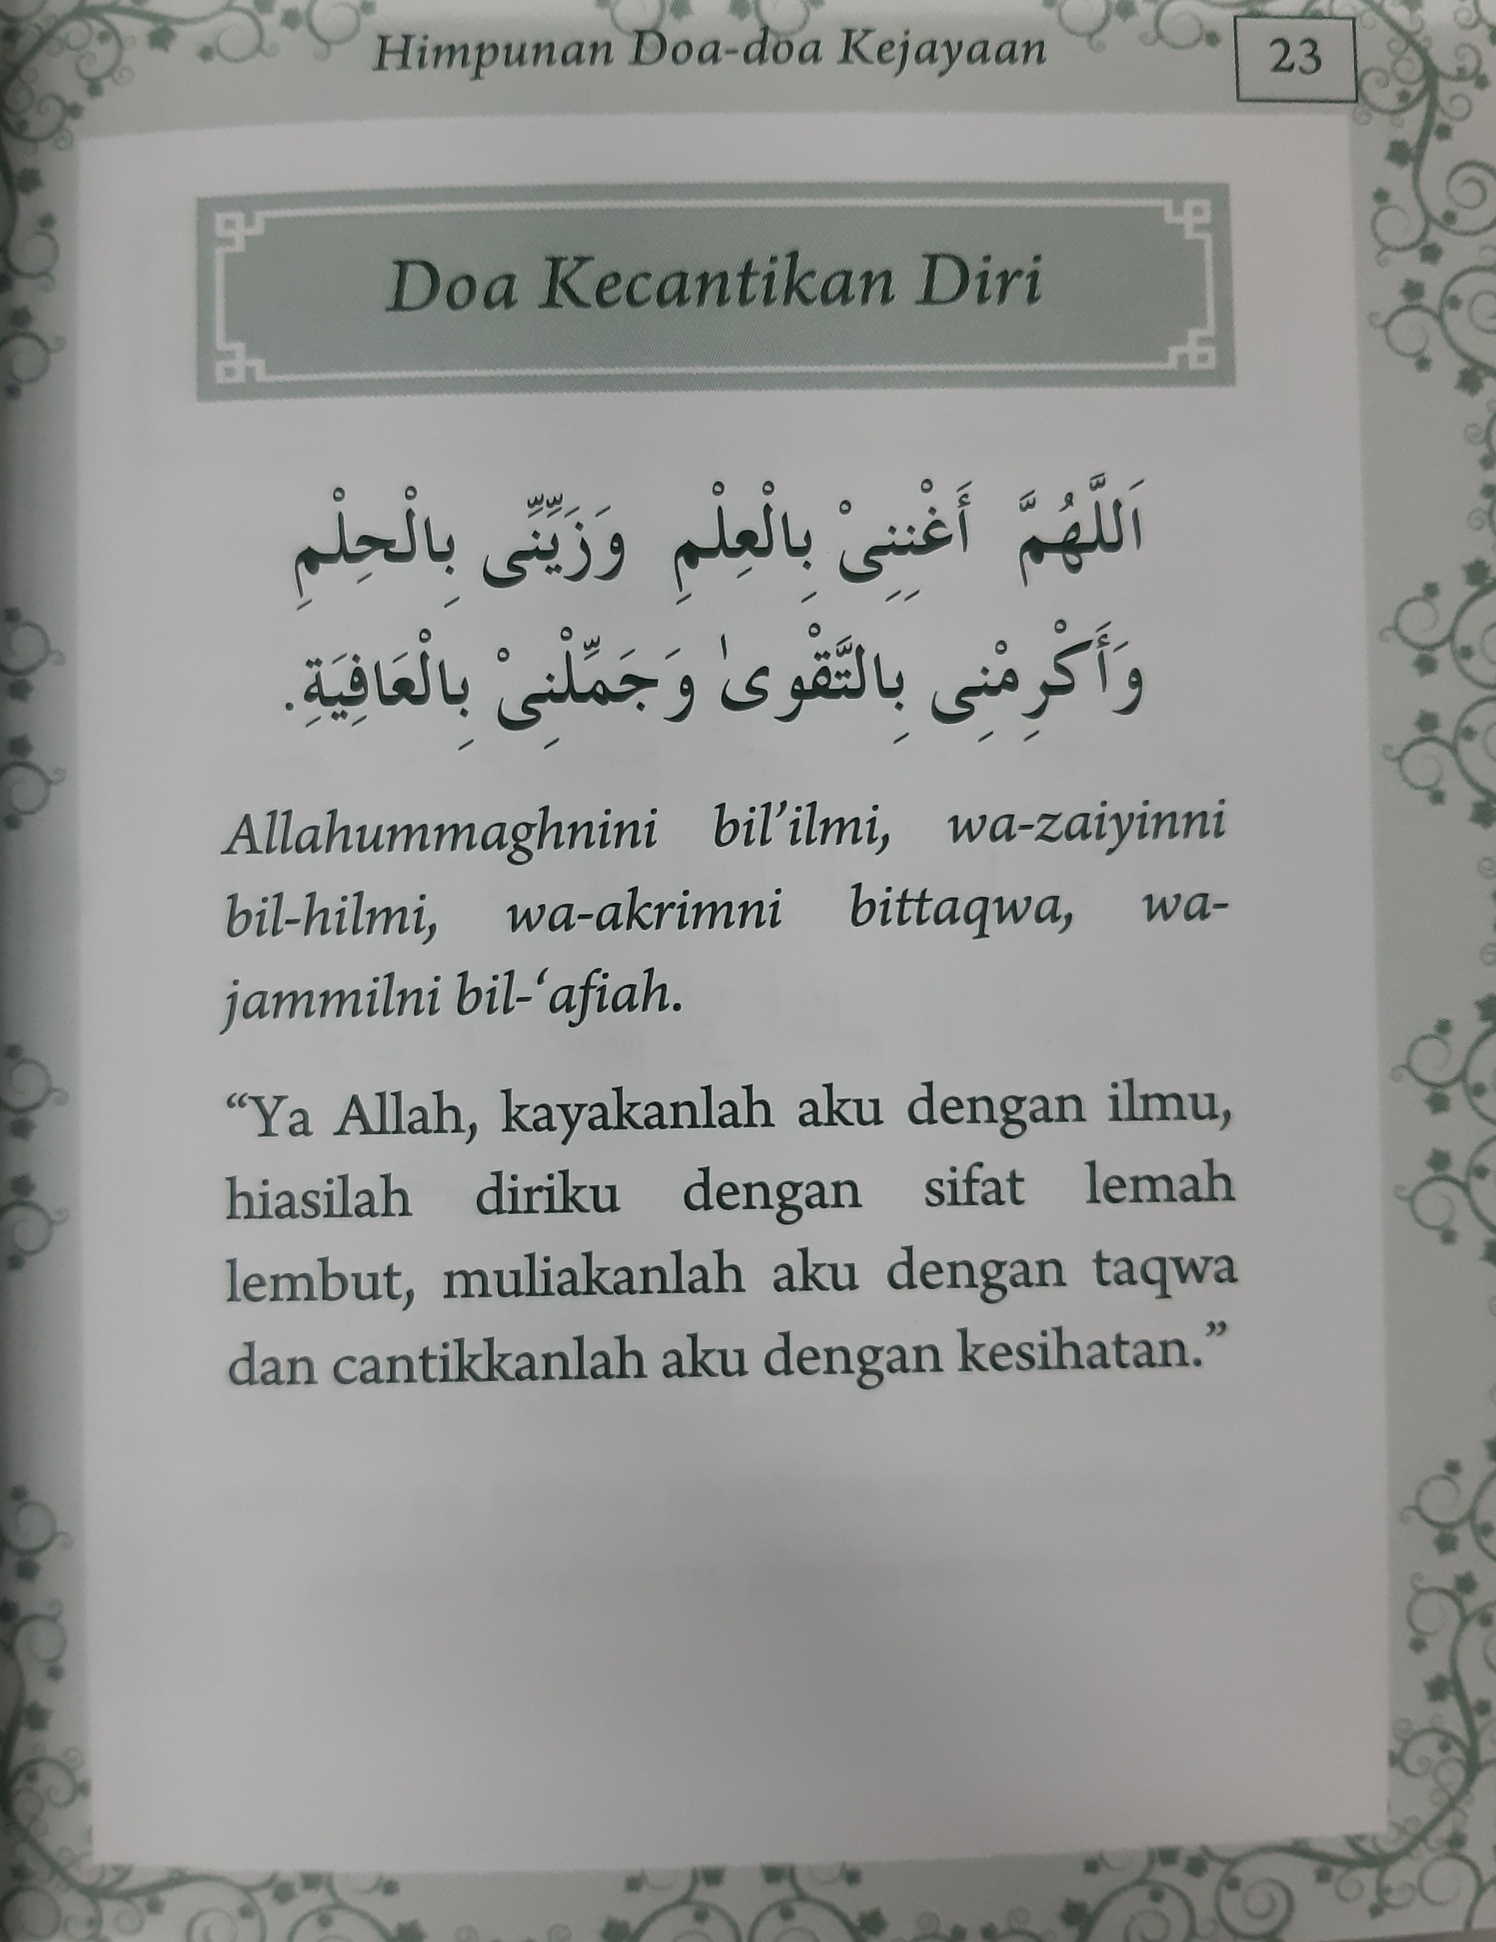 Himpunan Doa-doa Kejayaan
23
Doa Kecantikan Diri
اَللَّهُمَّ أَغْنِنِيْ بِالْعِلْمِ وَزَيِّنِّى بِالْحِلْمِ
وَأَكْرِمْنِى بِالتَّقْوىٰ وَجَمِّلْنِىْ بِالْعَافِيَةِ.
Allahummaghnini bil’ilmi, wa-zaiyinni
bil-hilmi, wa-akrimni bittaqwa, wa-
jammilni bil-‘afiah.
“Ya Allah, kayakanlah aku dengan ilmu,
hiasilah diriku dengan sifat lemah
lembut, muliakanlah aku dengan taqwa
dan cantikkanlah aku dengan kesihatan.”